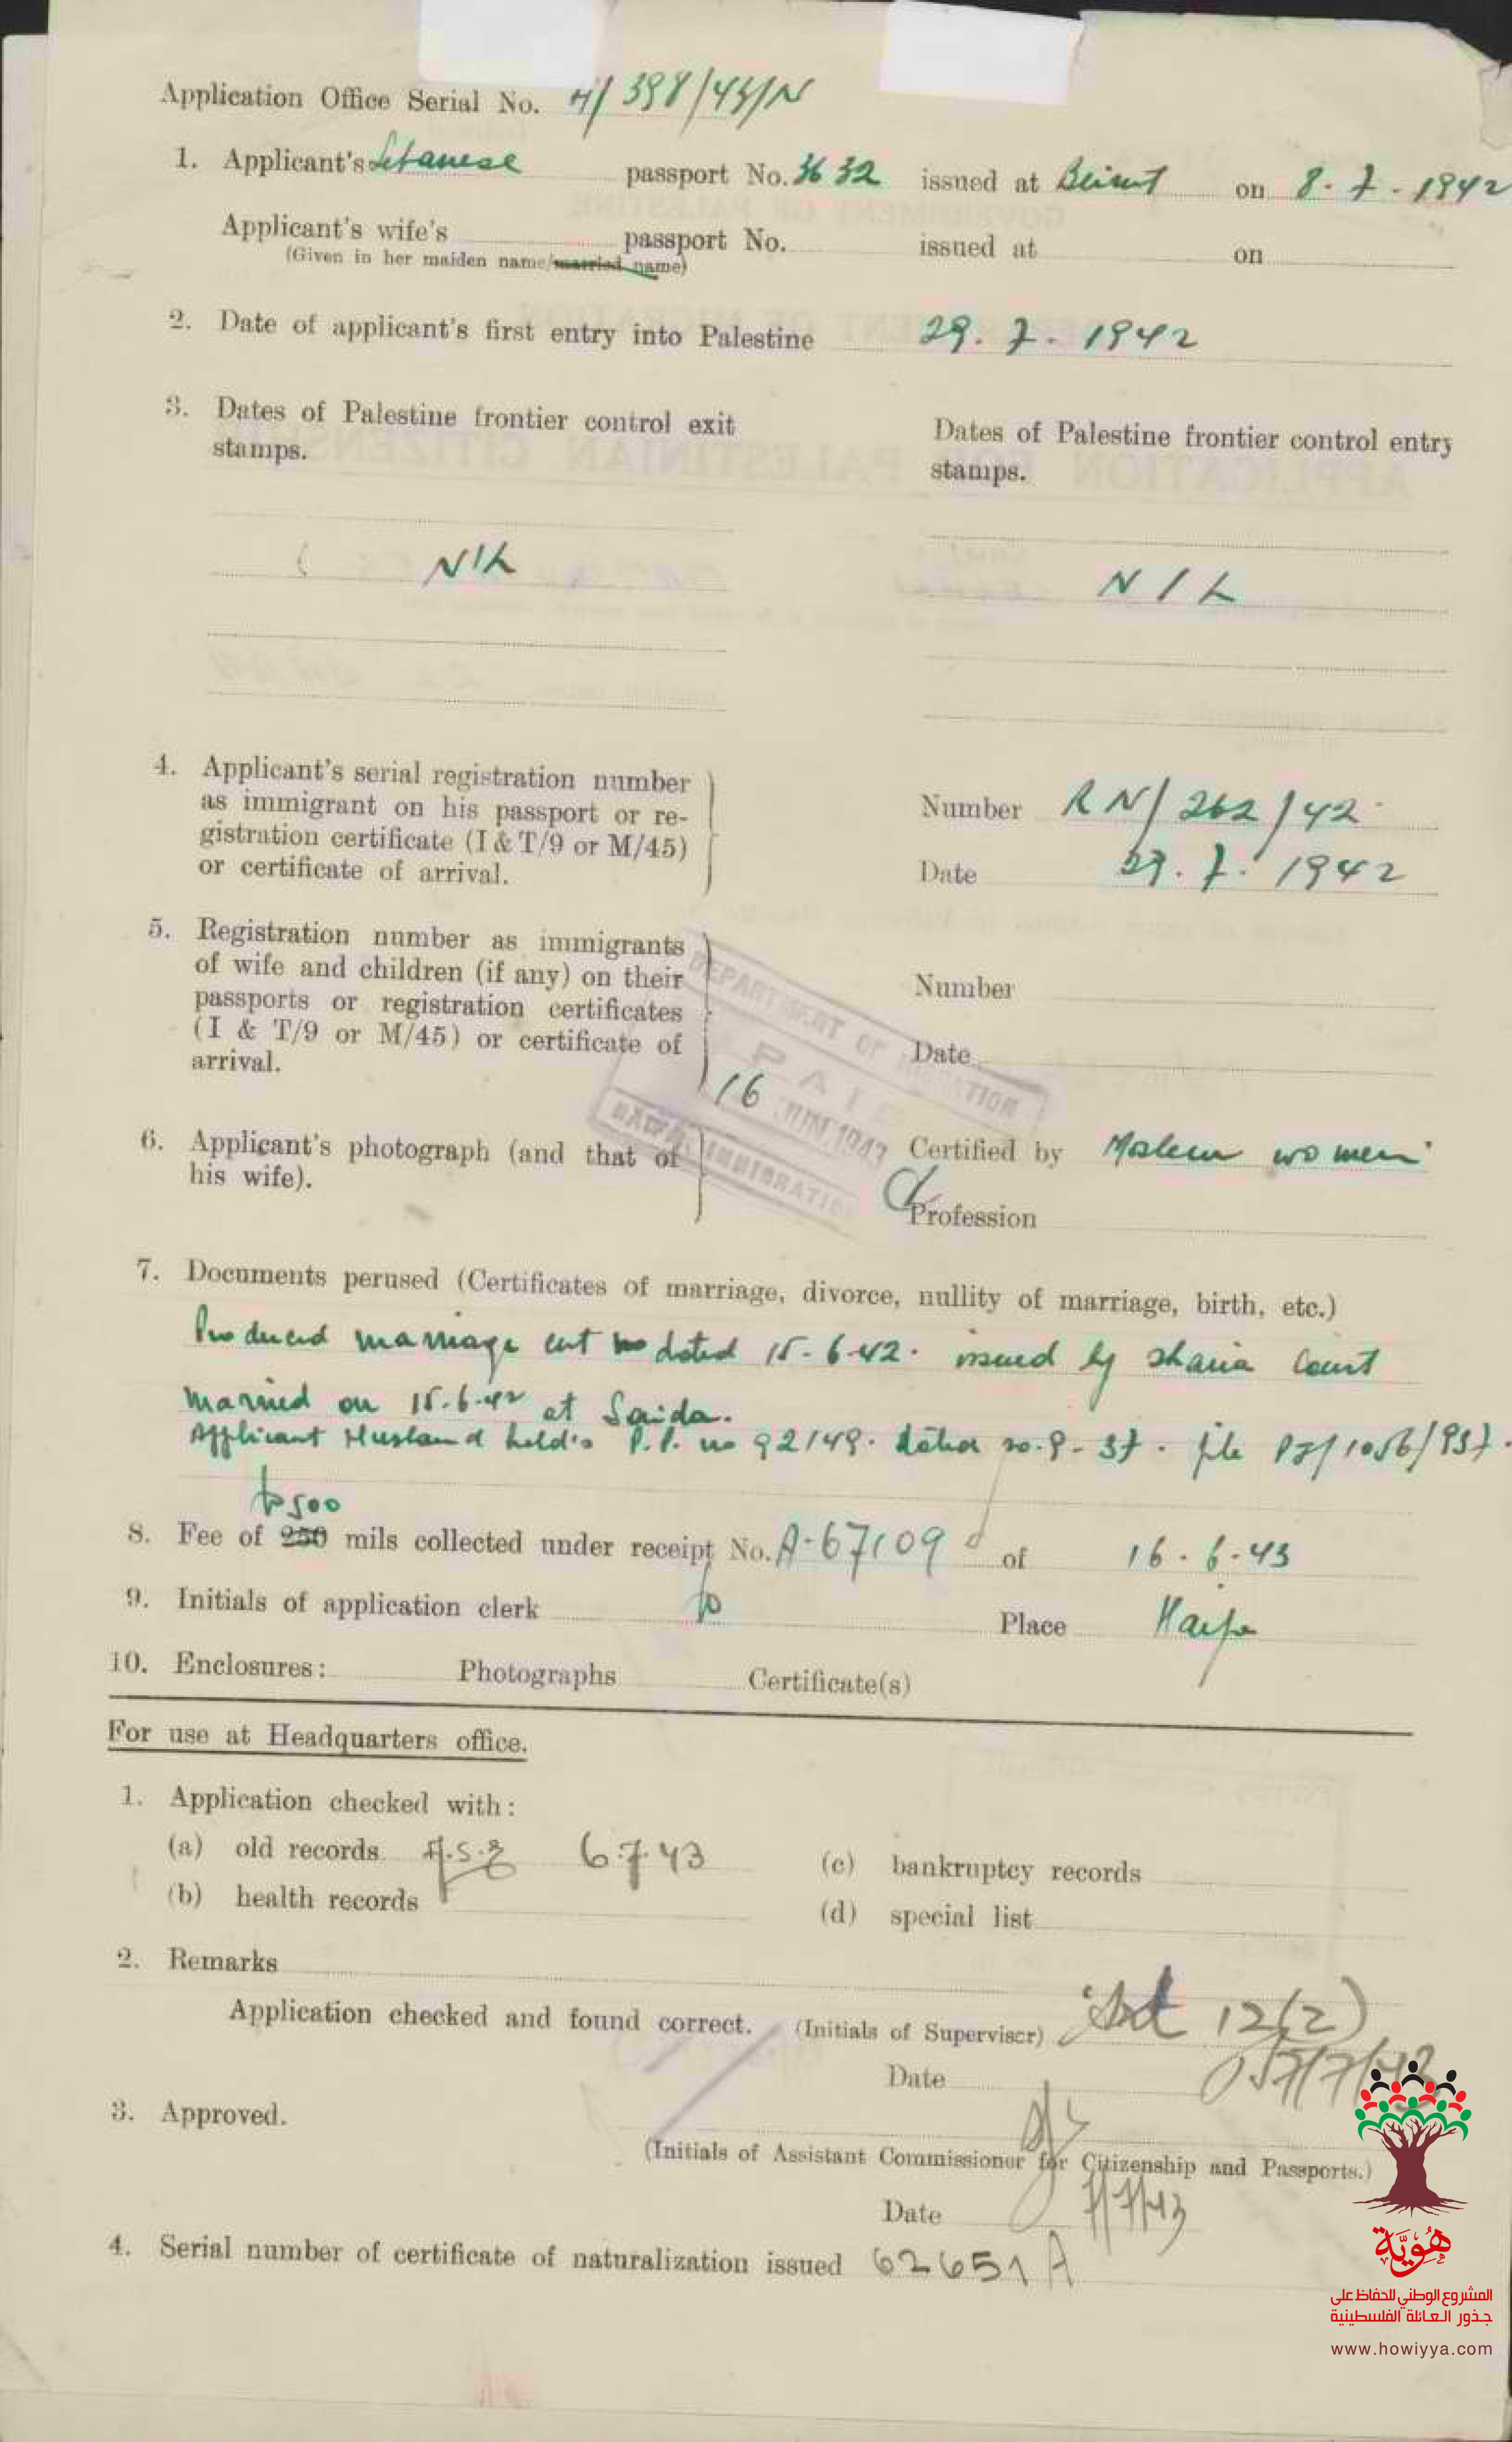 Application Office Serial No. H/398/43/N
1. Applicant's Lebanese passport No. 3632 issued at Beirut on 8.7.1942
Applicant's wife's passport No. issued at on
(Given in her maiden name/married name)
2. Date of applicant's first entry into Palestine 29.7.1942
3. Dates of Palestine frontier control exit stamps.
Dates of Palestine frontier control entry stamps.
NIL
NIL
4. Applicant's serial registration number
as immigrant on his passport or re-
gistration certificate (I & T/9 or M/45)
or certificate of arrival.
Number RN/262/42
Date 29.7.1942
5. Registration number as immigrants
of wife and children (if any) on their
passports or registration certificates
(I & T/9 or M/45) or certificate of
arrival.
Number
Date
DEPARTMENT OF MIGRATION
PAID
16 JUN 1943
IMMIGRATION
6. Applicant's photograph (and that of
his wife).
Certified by Moslem women
Profession
7. Documents perused (Certificates of marriage, divorce, nullity of marriage, birth, etc.)
Produced marriage cert no dated 15-6-42. issued by Sharia Court
married on 15.6.42 at Saida.
Applicant Husband held's P.P. no 92149. dated 20.9-37. file PJ/1056/937.
500
8. Fee of 250 mils collected under receipt No. A-67109 of 16.6.43
9. Initials of application clerk
Place Haifa
10. Enclosures: Photographs Certificate(s)
For use at Headquarters office.
1. Application checked with:
(a) old records 6.7.43
(b) health records
(c) bankruptcy records
(d) special list
2. Remarks
Application checked and found correct. (Initials of Supervisor) 12(2)
Date 7/7/43
3. Approved.
(Initials of Assistant Commissioner for Citizenship and Passports.)
Date 7/7/43
4. Serial number of certificate of naturalization issued 62651 A
هُوِيَّة
المشروع الوطني للحفاظ على
جذور العائلة الفلسطينية
www.howiyya.com